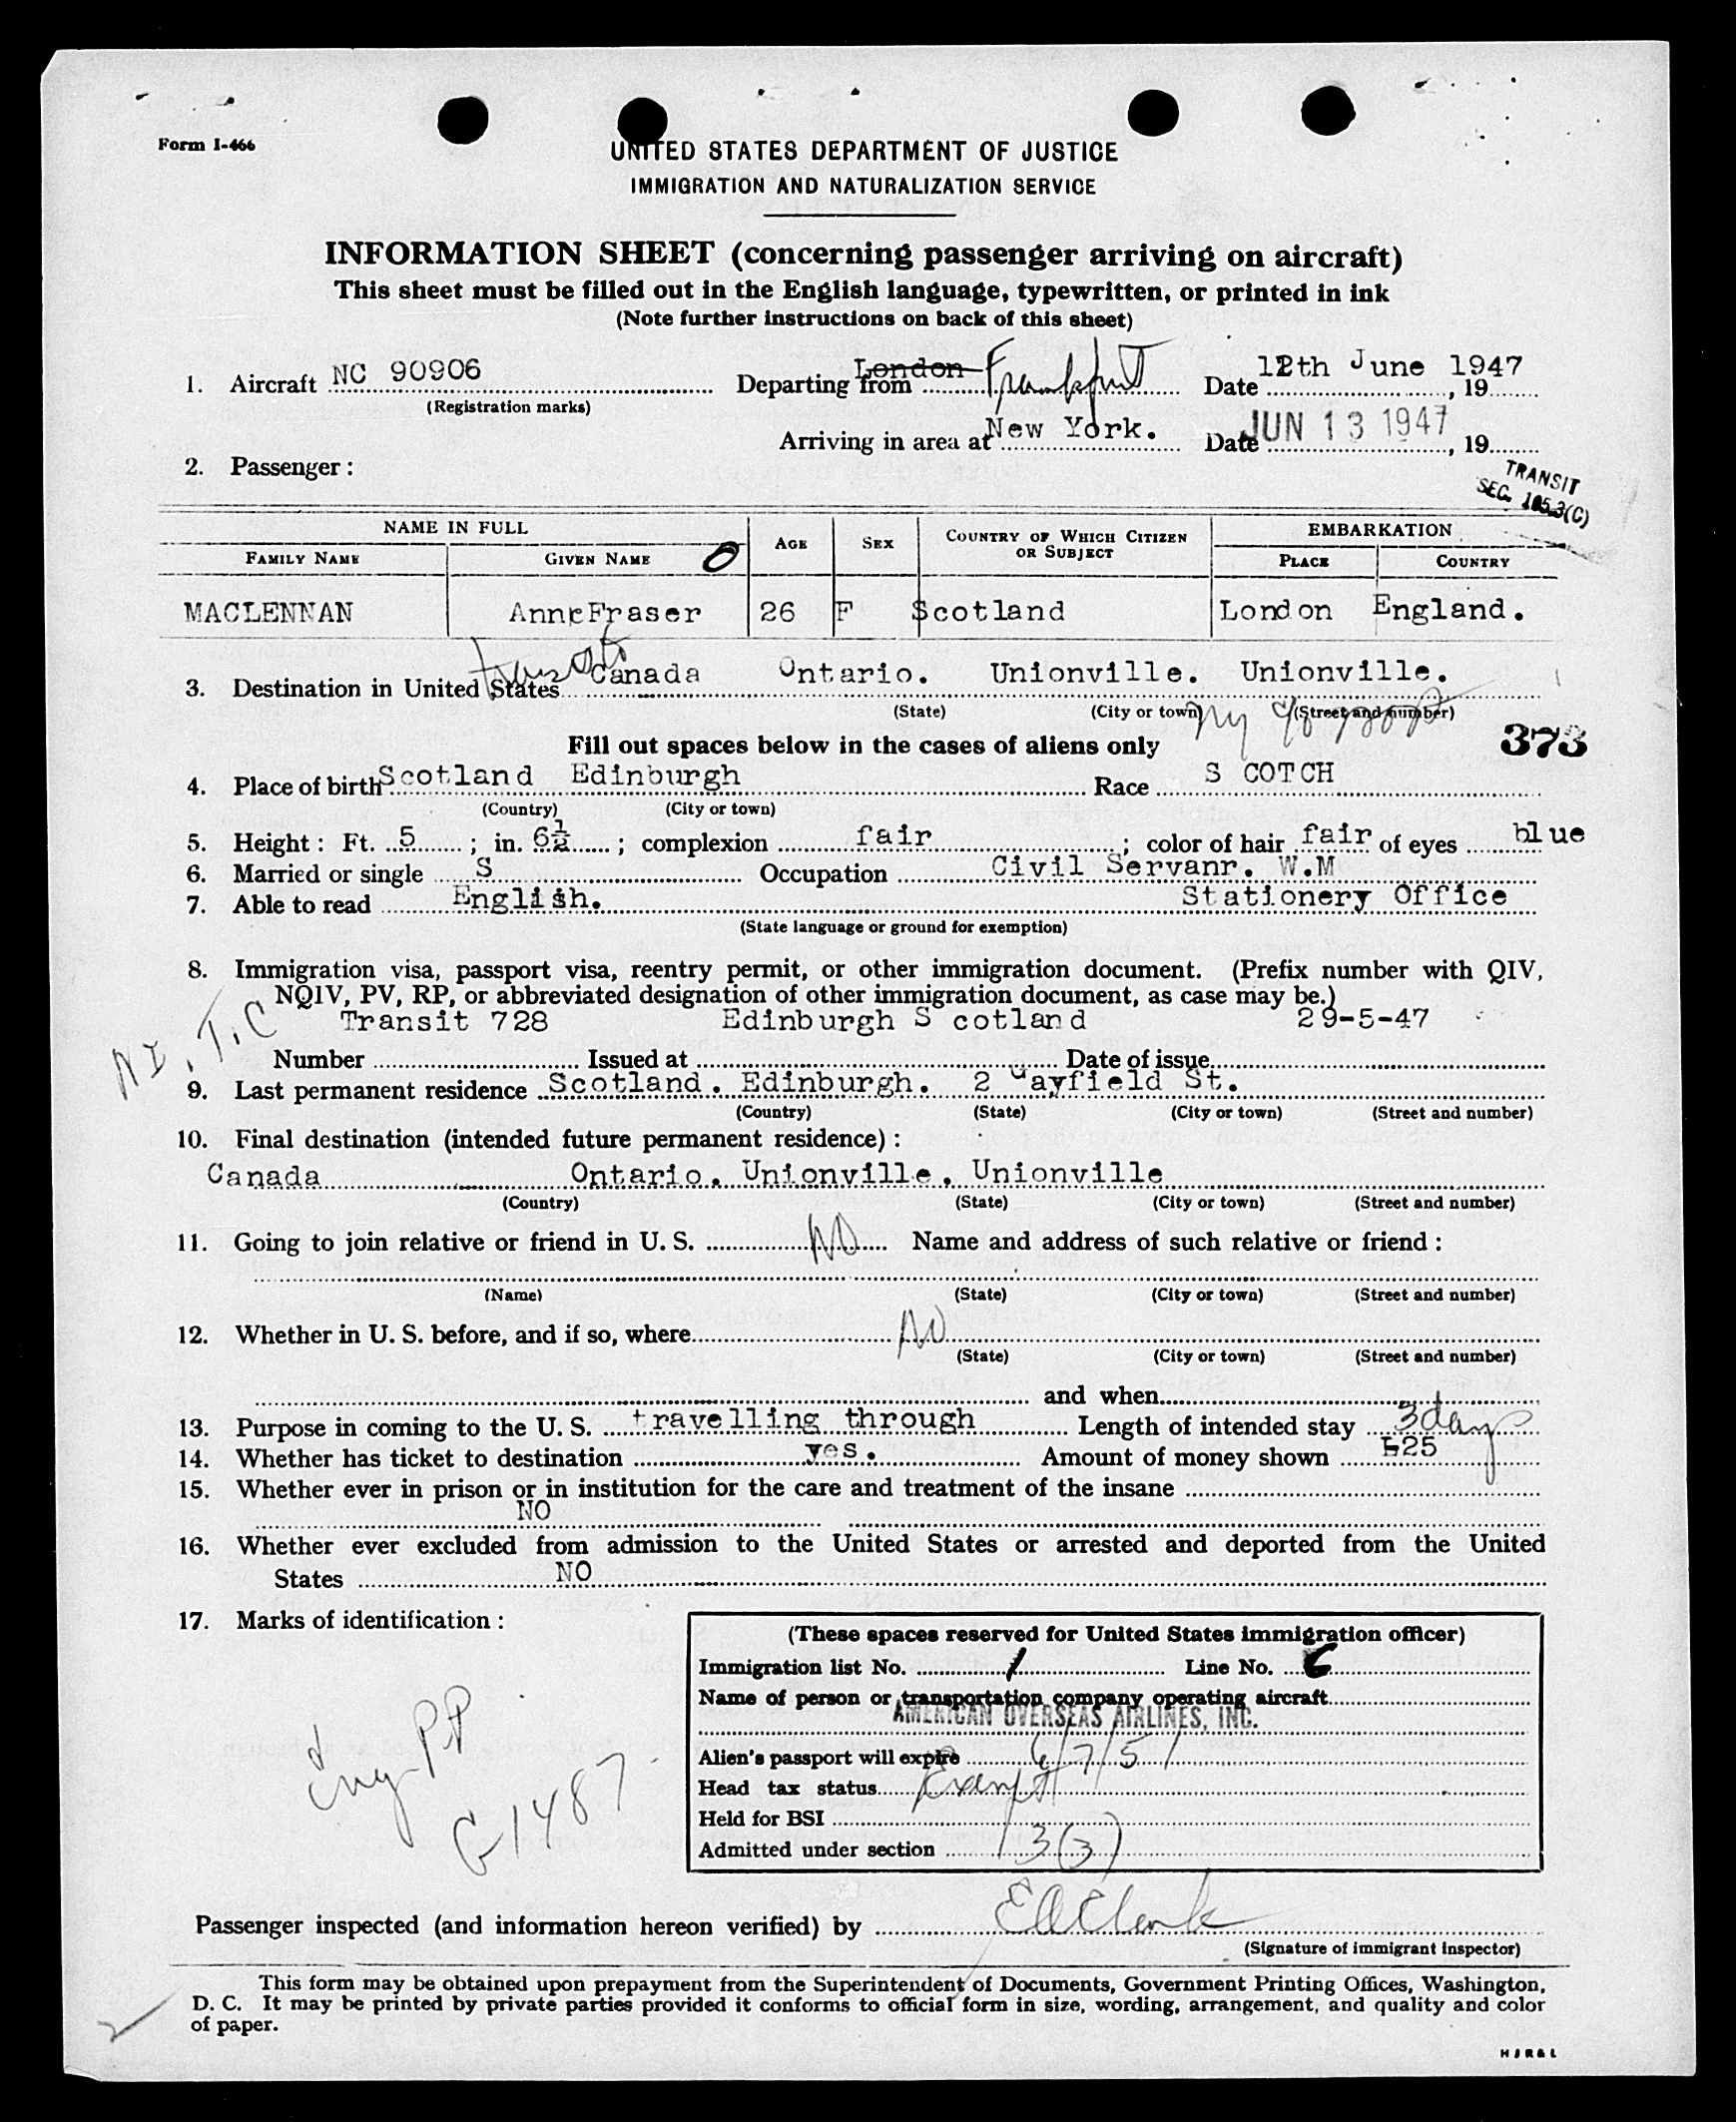 Form I-466
UNITED STATES DEPARTMENT OF JUSTICE
IMMIGRATION AND NATURALIZATION SERVICE
INFORMATION SHEET (concerning passenger arriving on aircraft)
This sheet must be filled out in the English language, typewritten, or printed in ink
(Note further instructions on back of this sheet)
1. Aircraft NC 90906 Departing from London Frankfurt Date 12th June 1947, 19
(Registration marks)
Arriving in area at New York. Date JUN 13 1947, 19
2. Passenger:
TRANSIT
SEC. 105.3(C)
NAME IN FULL AGE SEX COUNTRY OF WHICH CITIZEN OR SUBJECT EMBARKATION
FAMILY NAME GIVEN NAME PLACE COUNTRY
MACLENNAN Anne Fraser 26 F Scotland London England.
3. Destination in United States transit Canada Ontario. Unionville. Unionville.
(State) (City or town) (Street and number)
Fill out spaces below in the cases of aliens only 373
4. Place of birth Scotland Edinburgh Race S COTCH
(Country) (City or town)
5. Height: Ft. 5; in. 6½; complexion fair; color of hair fair of eyes blue
6. Married or single S Occupation Civil Servanr. W.M
7. Able to read English. Stationery Office
(State language or ground for exemption)
8. Immigration visa, passport visa, reentry permit, or other immigration document. (Prefix number with QIV,
NQIV, PV, RP, or abbreviated designation of other immigration document, as case may be.)
Transit 728 Edinburgh S cotland 29-5-47
Number Issued at Date of issue
9. Last permanent residence Scotland. Edinburgh. 2 Gayfield St.
(Country) (State) (City or town) (Street and number)
10. Final destination (intended future permanent residence):
Canada Ontario. Unionville. Unionville
(Country) (State) (City or town) (Street and number)
11. Going to join relative or friend in U. S. NO Name and address of such relative or friend:
(Name) (State) (City or town) (Street and number)
12. Whether in U. S. before, and if so, where NO
(State) (City or town) (Street and number)
and when
13. Purpose in coming to the U. S. travelling through Length of intended stay 3 days
14. Whether has ticket to destination yes. Amount of money shown £25
15. Whether ever in prison or in institution for the care and treatment of the insane
NO
16. Whether ever excluded from admission to the United States or arrested and deported from the United
States NO
17. Marks of identification:
G 1487
(These spaces reserved for United States immigration officer)
Immigration list No. 1 Line No. 6
Name of person or transportation company operating aircraft
AMERICAN OVERSEAS AIRLINES, INC.
Alien's passport will expire 6/7/51
Head tax status Exempt
Held for BSI
Admitted under section 3(3)
Passenger inspected (and information hereon verified) by E A Clark
(Signature of immigrant inspector)
This form may be obtained upon prepayment from the Superintendent of Documents, Government Printing Offices, Washington,
D. C. It may be printed by private parties provided it conforms to official form in size, wording, arrangement, and quality and color
of paper.
HJR&L